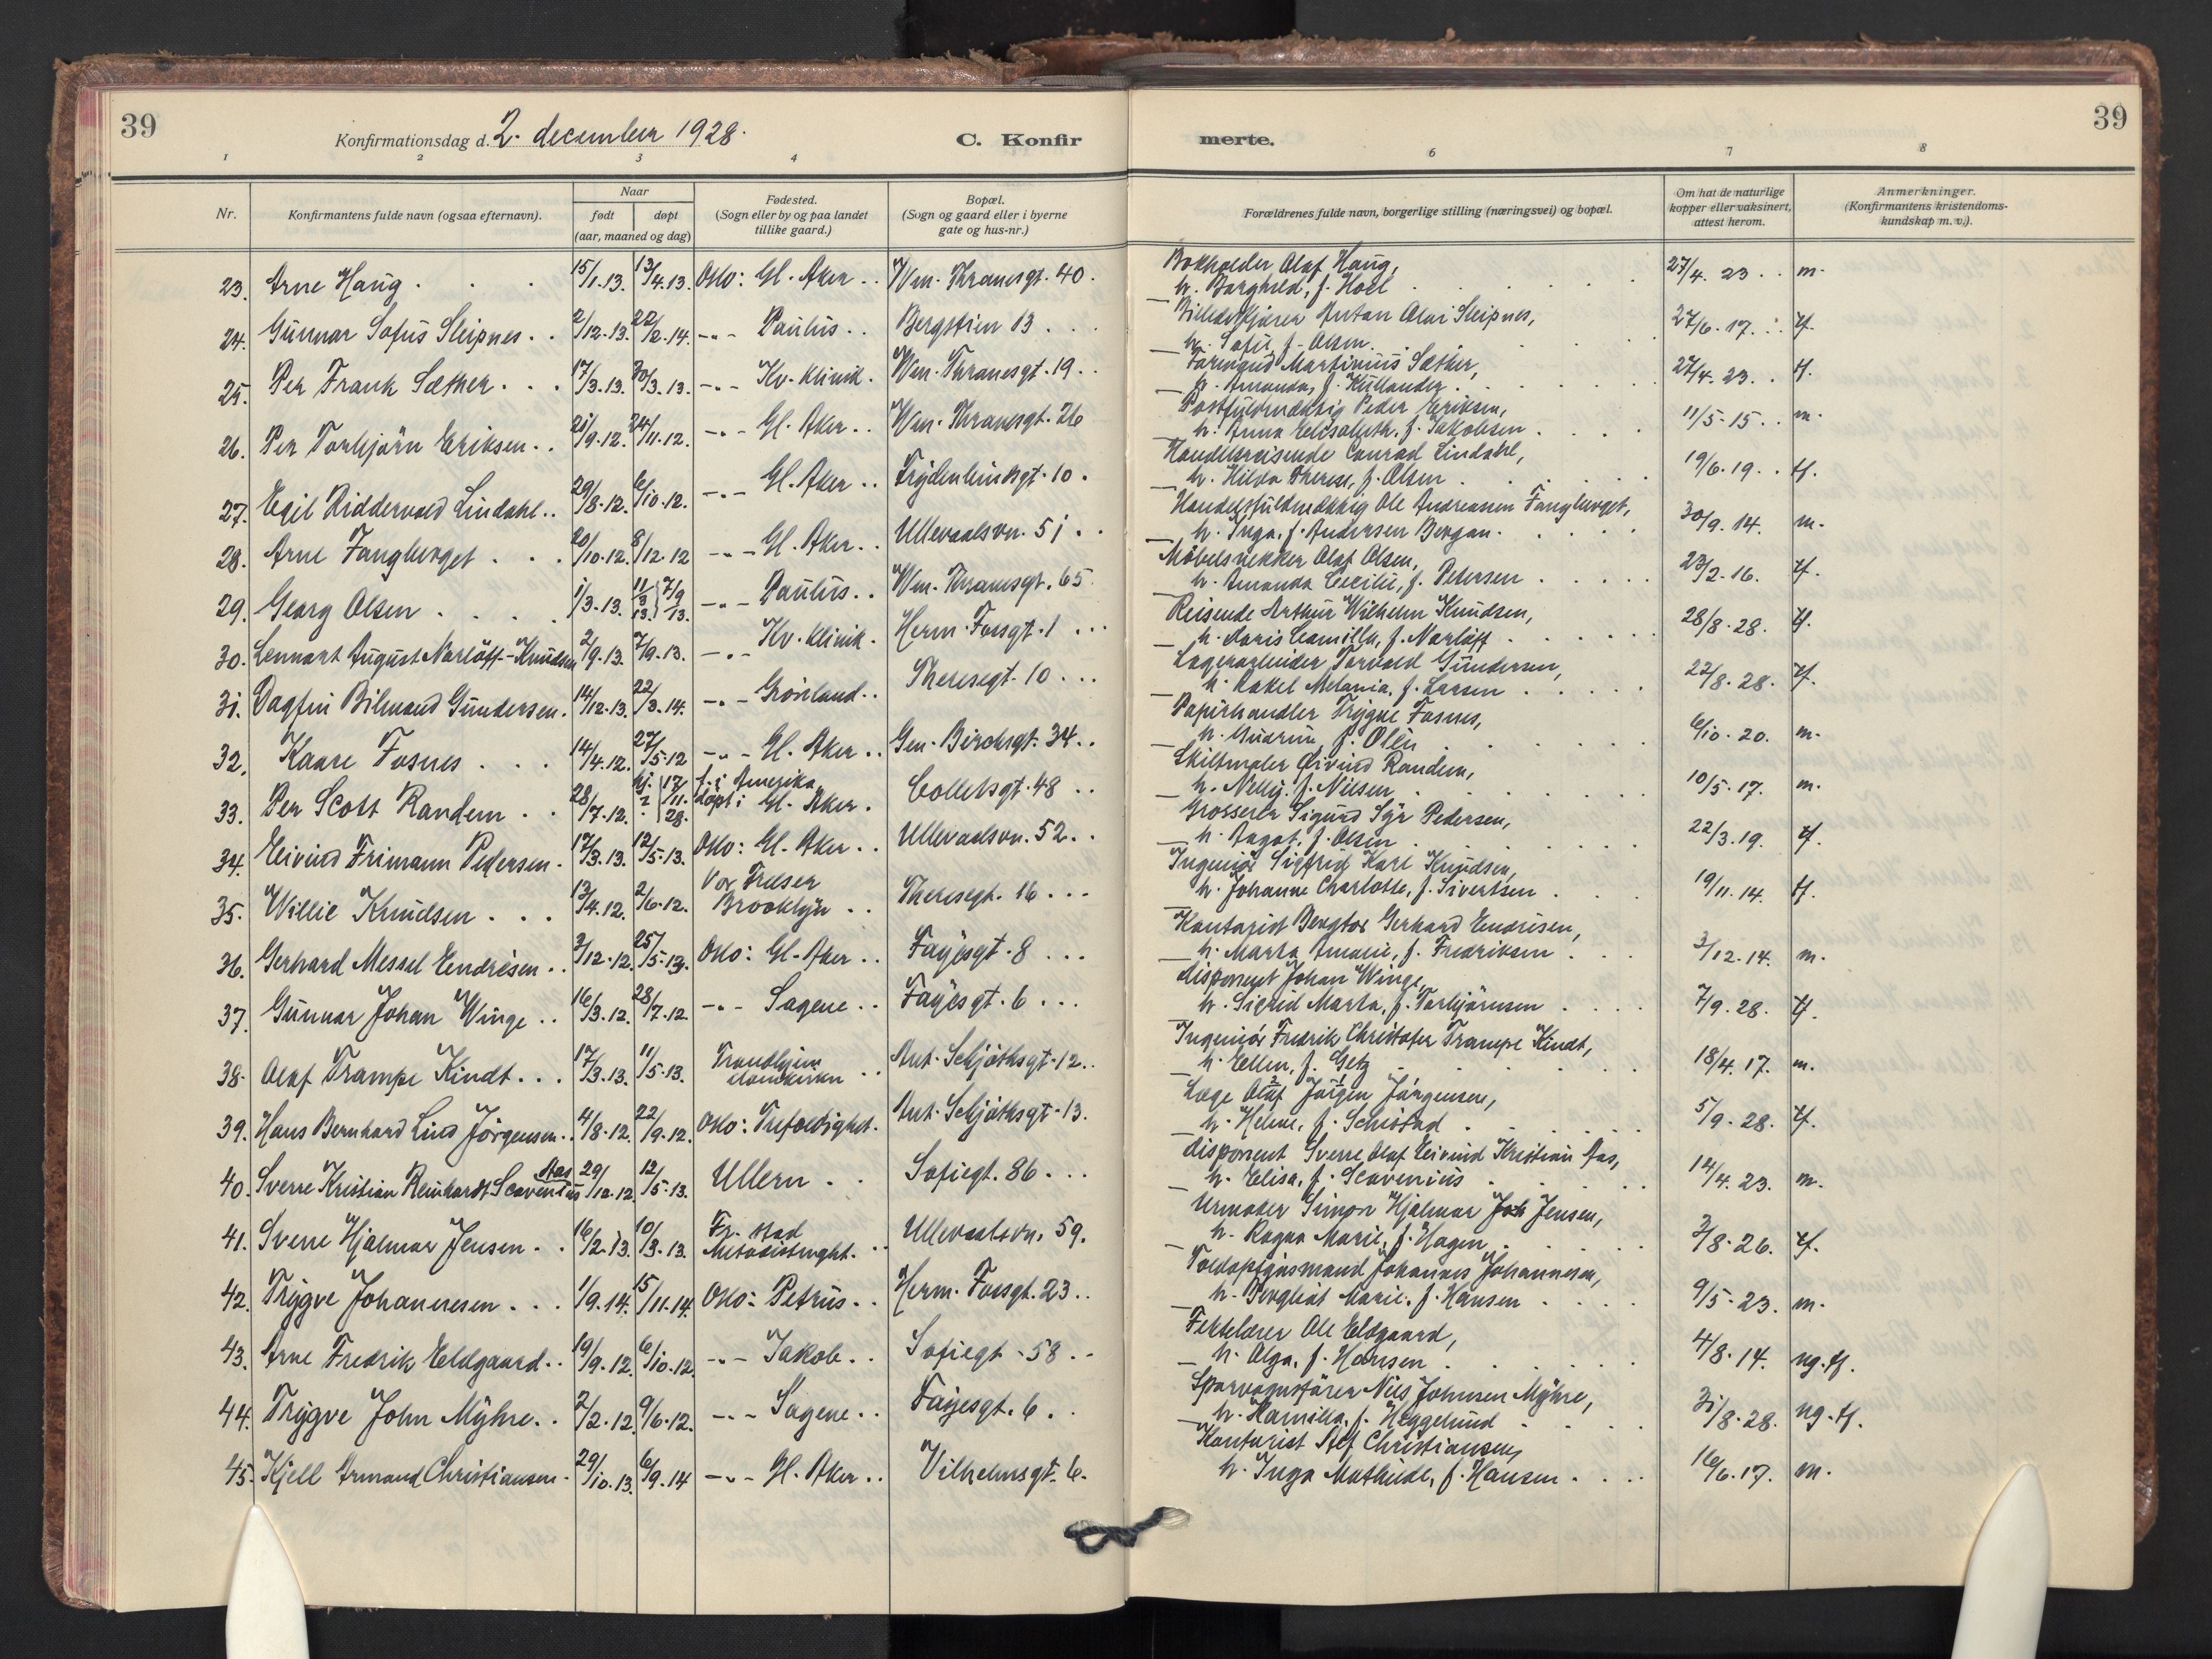 39
Konfirmationsdag d. 2. december 1928.
C. Konfir
merte.
39
1 2 3 4 6 7 8
Nr.
Konfirmantens fulde navn (ogsaa efternavn).
Naar
født
døpt
(aar, maaned og dag)
Fødested.
(Sogn eller by og paa landet
tillike gaard.)
Bopæl.
(Sogn og gaard eller i byerne
gate og hus-nr.)
Forældrenes fulde navn, borgerlige stilling (næringsvei) og bopæl.
Om hat de naturlige
kopper eller vaksinert,
attest herom.
Anmerkninger.
(Konfirmantens kristendoms-
kundskap m. v.).
23. Arne Haug 15/1.13. 13/4.13. Oslo: Gl. Aker Wm. Thranesgt. 40. Bokholder Olaf Haug, 27/4. 23 m.
h. Borghild, f. Hoel
24. Gunnar Sofus Sleipnes 2/12.13. 22/2.14. -"- Paulus Bergstien 13 Anton Olai Sleipnes, 27/6.17. tf.
h. Sofie, f. Olsen
25. Per Frank Sæther 17/3.13. 30/3.13. -"- Kv. klinik. Wm. Thranesgt. 19 Formand Martinius Sæther, 27/4.23. tf.
h. Amanda, f. Kullander
26. Per Torbjörn Eriksen 21/9.12. 24/11.12. -"- Gl. Aker Wm. Thranesgt. 26 Postfuldmektig Peder Eriksen, 11/5-15 m.
h. Anna Elisabeth, f. Jakobsen
27. Egil Riddervold Lindahl 29/8.12. 6/10.12. -"- Gl. Aker Frydenlundsgt. 10. Handelsreisende Conrad Lindahl, 19/6.19 tf.
h. Hilda Therese, f. Olsen
28. Arne Fangberget 20/10.12. 8/12.12 -"- Gl. Aker Ullevaalsvn. 51 Handelsfuldmektig Ole Andreassen Fangberget, 30/9.14. m.
h. Inga, f. Andersen Bergan.
29. Georg Olsen 1/3.13. 11/3 13. 7/9 13. -"- Paulus Wm. Thranesgt. 65 Möbelsnekker Olaf Olsen, 23/2-16. tf.
h. Amanda Cecilie, f. Petersen
30. Lennart August Norlöff-Knudsen 2/9.13. 7/9.13. -"- Kv. klinik. Herm. Fossgt. 1 Reisende Arthur Wilhelm Knudsen, 28/8.28. tf.
h. Doris Camilla, f. Norlöff
31. Dagfin Bilmand Gundersen. 14/12.13. 22/3.14. -"- Grönland Theresegt. 10 Lagerarbeider Torvald Gundersen, 22/8.28. tf.
h. Rakel Melania, f. Larsen
32. Kaare Fosnes 14/4.12. 27/5.12 -"- Gl. Aker Gen. Birchsgt. 34 Papirhandler Trygve Fosnes, 6/10.20. m.
h. Gudrun, f. Olén
33. Per Scott Randem 28/7.12. hj. ? 17/11. 28. f. i Amerika
döpt i Gl. Aker. Colletsgt. 48 Skiltmaler Øivind Randem, 10/5.17. m.
h. Nelly, f. Nilsen
34. Eivind Frimann Pedersen. 17/3.13. 12/5.13. Oslo: Gl. Aker Ullevaalsvn. 52 Grosserer Sigurd Syr Pedersen, 22/3.19. tf.
h. Aagot, f. Olsen
35. Willie Knudsen 13/4.12. 2/6.12. Vor Frelser
Brooklyn Theresegt. 16 Ingeniör Sigfrid Karl Knudsen, 19/11.14. tf.
h. Johanne Charlotte, f. Sivertsen
36. Gerhard Messel Endrésen 3/12.12. 25/5.13. Oslo: Gl. Aker Fayesgt. 8 Kontorist Bergtor Gerhard Endresen, 3/12.14. m.
h. Marta Amalie, f. Fredriksen
37. Gunnar Johan Winge 16/3.12. 28/7.12 -"- Sagene Fayesgt. 6 disponent Johan Winge, 7/9.28. tf.
h. Sigrid Marta, f. Torbjörnsen
38. Olaf Trampe Kindt 17/3.13. 11/5.13. Trondhjem
domkirken Ant. Schjöthsgt. 12 Ingeniör Fredrik Christofer Trampe Kindt, 18/4.17. m.
h. Ellen, f. Getz
39. Hans Bernhard Lind Jörgensen 4/8.12. 22/9.12. Oslo: Trefoldighet. Ant. Schjöthsgt. 13. Læge Olaf Jörgen Jörgensen, 5/9.28. tf.
h. Helene, f. Schiöted
40. Sverre Kristian Reinhardt Scavenius Aas 29/12.12. 12/5.13. Ullern Sofiegt. 86 disponent Sverre Olaf Eivind Kristian Aas, 14/4.23. m.
h. Elisa, f. Scavenius
41. Sverre Hjalmar Jensen 16/2.13. 10/3.13. Fr. stad
Metodistmght. Ullevaalsvn. 59. Urmaker Simon Hjalmar Jensen, 3/8.26. tf.
h. Ragna Marie, f. Hagen
42. Trygve Johannesen 1/9.14. 15/11.14. Oslo: Petrus Herm. Fossgt. 23 Toldopsynsmand Johannes Johannesen, 9/5.23. m.
h. Bergliot Marie, f. Hansen
43. Arne Fredrik Eldgaard 19/9.12. 6/10.12. -"- Jakob Sofiegt. 58 Fektelærer Ole Eldgaard, 4/8.14. ng.tf.
h. Olga, f. Hansen
44. Trygve John Myhre 2/2.12. 9/6.12. -"- Sagene Fayesgt. 6. Sporvognsförer Nils Johnsen Myhre, 31/8.28. ng.tf.
h. Kamilla, f. Heggelund
45. Kjell Armand Christiansen 29/10.13. 6/9.14 -"- Gl. Aker Vilhelmsgt. 6. Kontorist Alf Christiansen, 16/6.17. m.
h. Inga Mathilde, f. Hansen